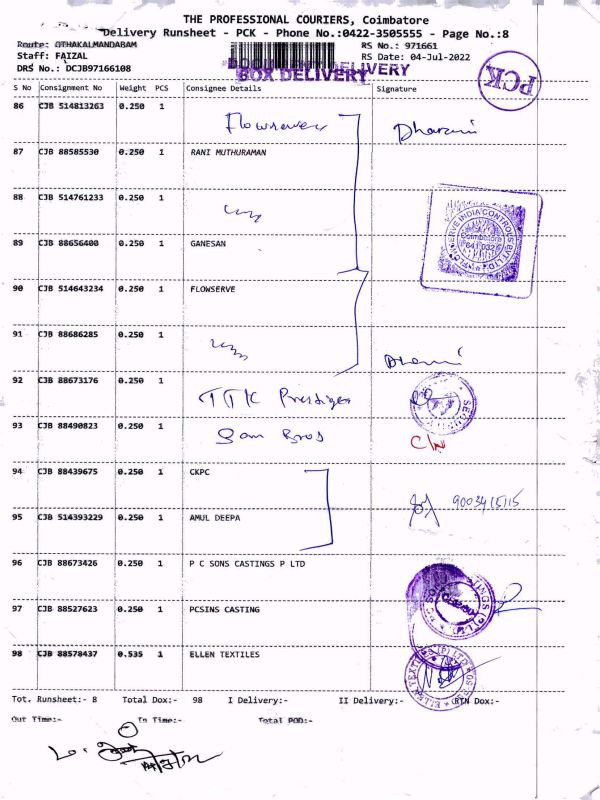 THE PROFESSIONAL COURIERS, Coimbatore
Delivery Runsheet - PCK - Phone No.:0422-3505555 - Page No.:8
Route: OTHAKALMANDABAM RS No.: 971661
Staff: FAIZAL RS Date: 04-Jul-2022
DRS No.: DCJB97166108
BOX DELIVERY
PCK
S No Consignment No Weight PCS Consignee Details Signature
86 CJB 514813263 0.250 1 Flowserve Dharani
87 CJB 88585530 0.250 1 RANI MUTHURAMAN
88 CJB 514761233 0.250 1
FLOWSERVE INDIA CONTROLS PVT LTD
Coimbatore
641 032
89 CJB 88656400 0.250 1 GANESAN
90 CJB 514643234 0.250 1 FLOWSERVE
91 CJB 88686285 0.250 1
92 CJB 88673176 0.250 1 TTK Prestige SECURITY
93 CJB 88490823 0.250 1 Sam Bros
94 CJB 88439675 0.250 1 CKPC
95 CJB 514393229 0.250 1 AMUL DEEPA
96 CJB 88673426 0.250 1 P C SONS CASTINGS P LTD
97 CJB 88527623 0.250 1 PCSINS CASTING
98 CJB 88578437 0.535 1 ELLEN TEXTILES ELLEN TEXTILES (P) LTD
Tot. Runsheet:- 8 Total Dox:- 98 I Delivery:- II Delivery:- RTN Dox:-
Out Time:- In Time:- Total POD:-